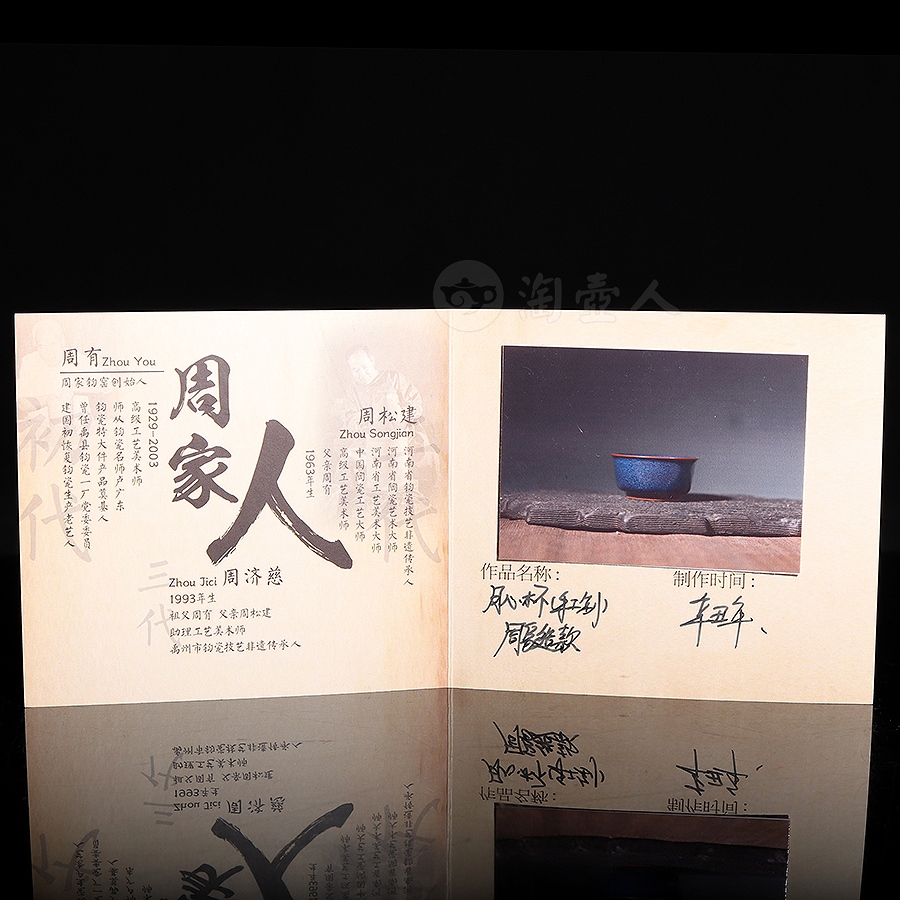 淘壶人
周有 Zhou You
周家钧窑创始人
1929-2003
高级工艺美术师
师从钧瓷名师卢广东
钧瓷特大件产品奠基人
曾任禹县钧瓷一厂党委委员
建国初恢复钧瓷生产老艺人
初代
周家人
周松建
Zhou Songjian
河南省钧瓷技艺非遗传承人
河南省陶瓷艺术大师
河南省工艺美术大师
中国陶瓷工艺大师
高级工艺美术师
父亲周有
1963年生
Zhou Jici 周济慈
1993年生
祖父周有 父亲周松建
助理工艺美术师
禹州市钧瓷技艺非遗传承人
三代
作品名称:
制作时间:
辛丑年、